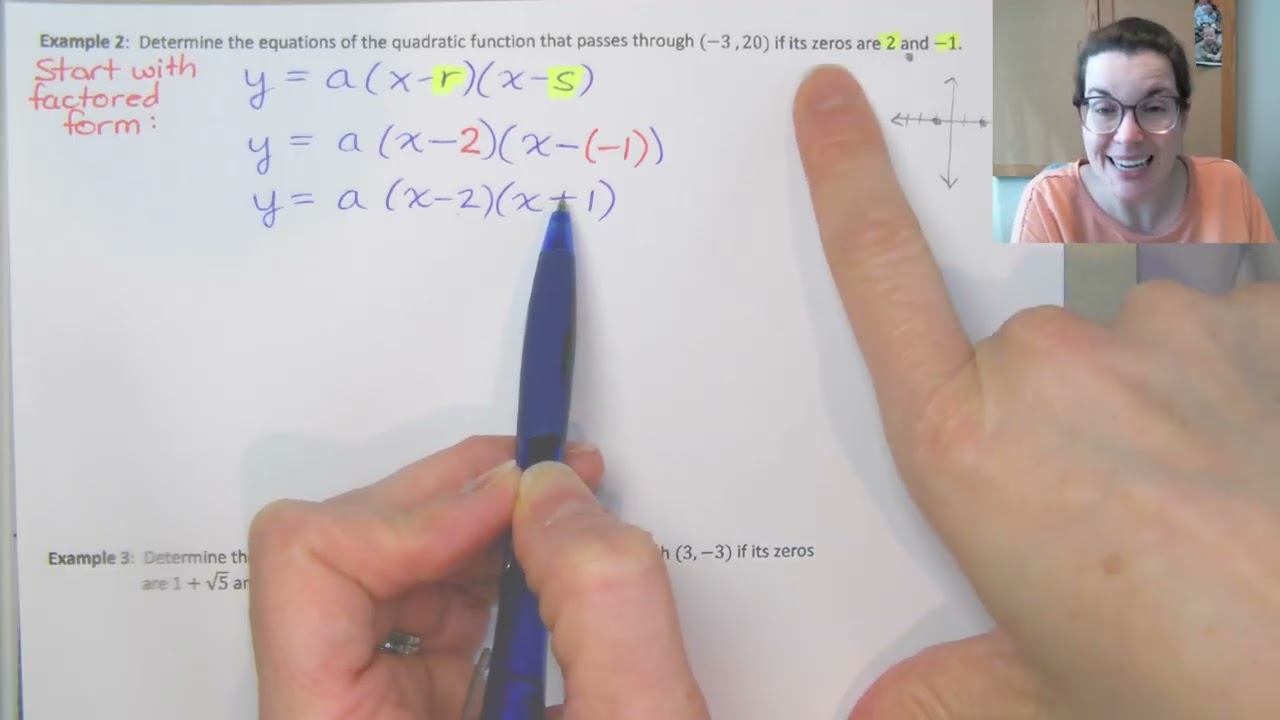 Example 2: Determine the equations of the quadratic function that passes through (−3 , 20) if its zeros are 2 and −1.
Start with
factored
form:
y = a(x-r)(x-s)
y = a (x-2)(x-(-1))
y = a (x-2)(x+1)
Example 3: Determine (3, −3) if its zeros
are 1 + √5